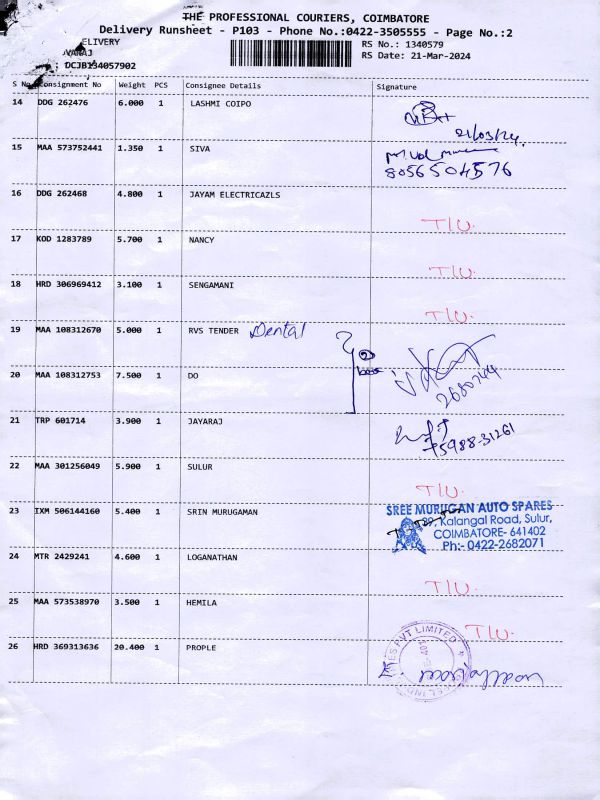 THE PROFESSIONAL COURIERS, COIMBATORE
Delivery Runsheet - P103 - Phone No.:0422-3505555 - Page No.:2
ELIVERY
RS No.: 1340579
RS Date: 21-Mar-2024
: DCJB134057902
S No Consignment No Weight PCS Consignee Details Signature
14 DDG 262476 6.000 1 LASHMI COIPO
21/03/24
15 MAA 573752441 1.350 1 SIVA
8056504576
16 DDG 262468 4.800 1 JAYAM ELECTRICAZLS
T/U.
17 KOD 1283789 5.700 1 NANCY
T/U.
18 HRD 306969412 3.100 1 SENGAMANI
T/U.
19 MAA 108312670 5.000 1 RVS TENDER Dental
20 MAA 108312753 7.500 1 DO
2680744
21 TRP 601714 3.900 1 JAYARAJ
75988-31261
22 MAA 301256049 5.900 1 SULUR
T/U.
23 IXM 506144160 5.400 1 SRIN MURUGAMAN
SREE MURUGAN AUTO SPARES
Kalangal Road, Sulur,
COIMBATORE- 641402
Ph:- 0422-2682071
24 MTR 2429241 4.600 1 LOGANATHAN
T/U.
25 MAA 573538970 3.500 1 HEMILA
T/U.
26 HRD 369313636 20.400 1 PROPLE
PVT LIMITED